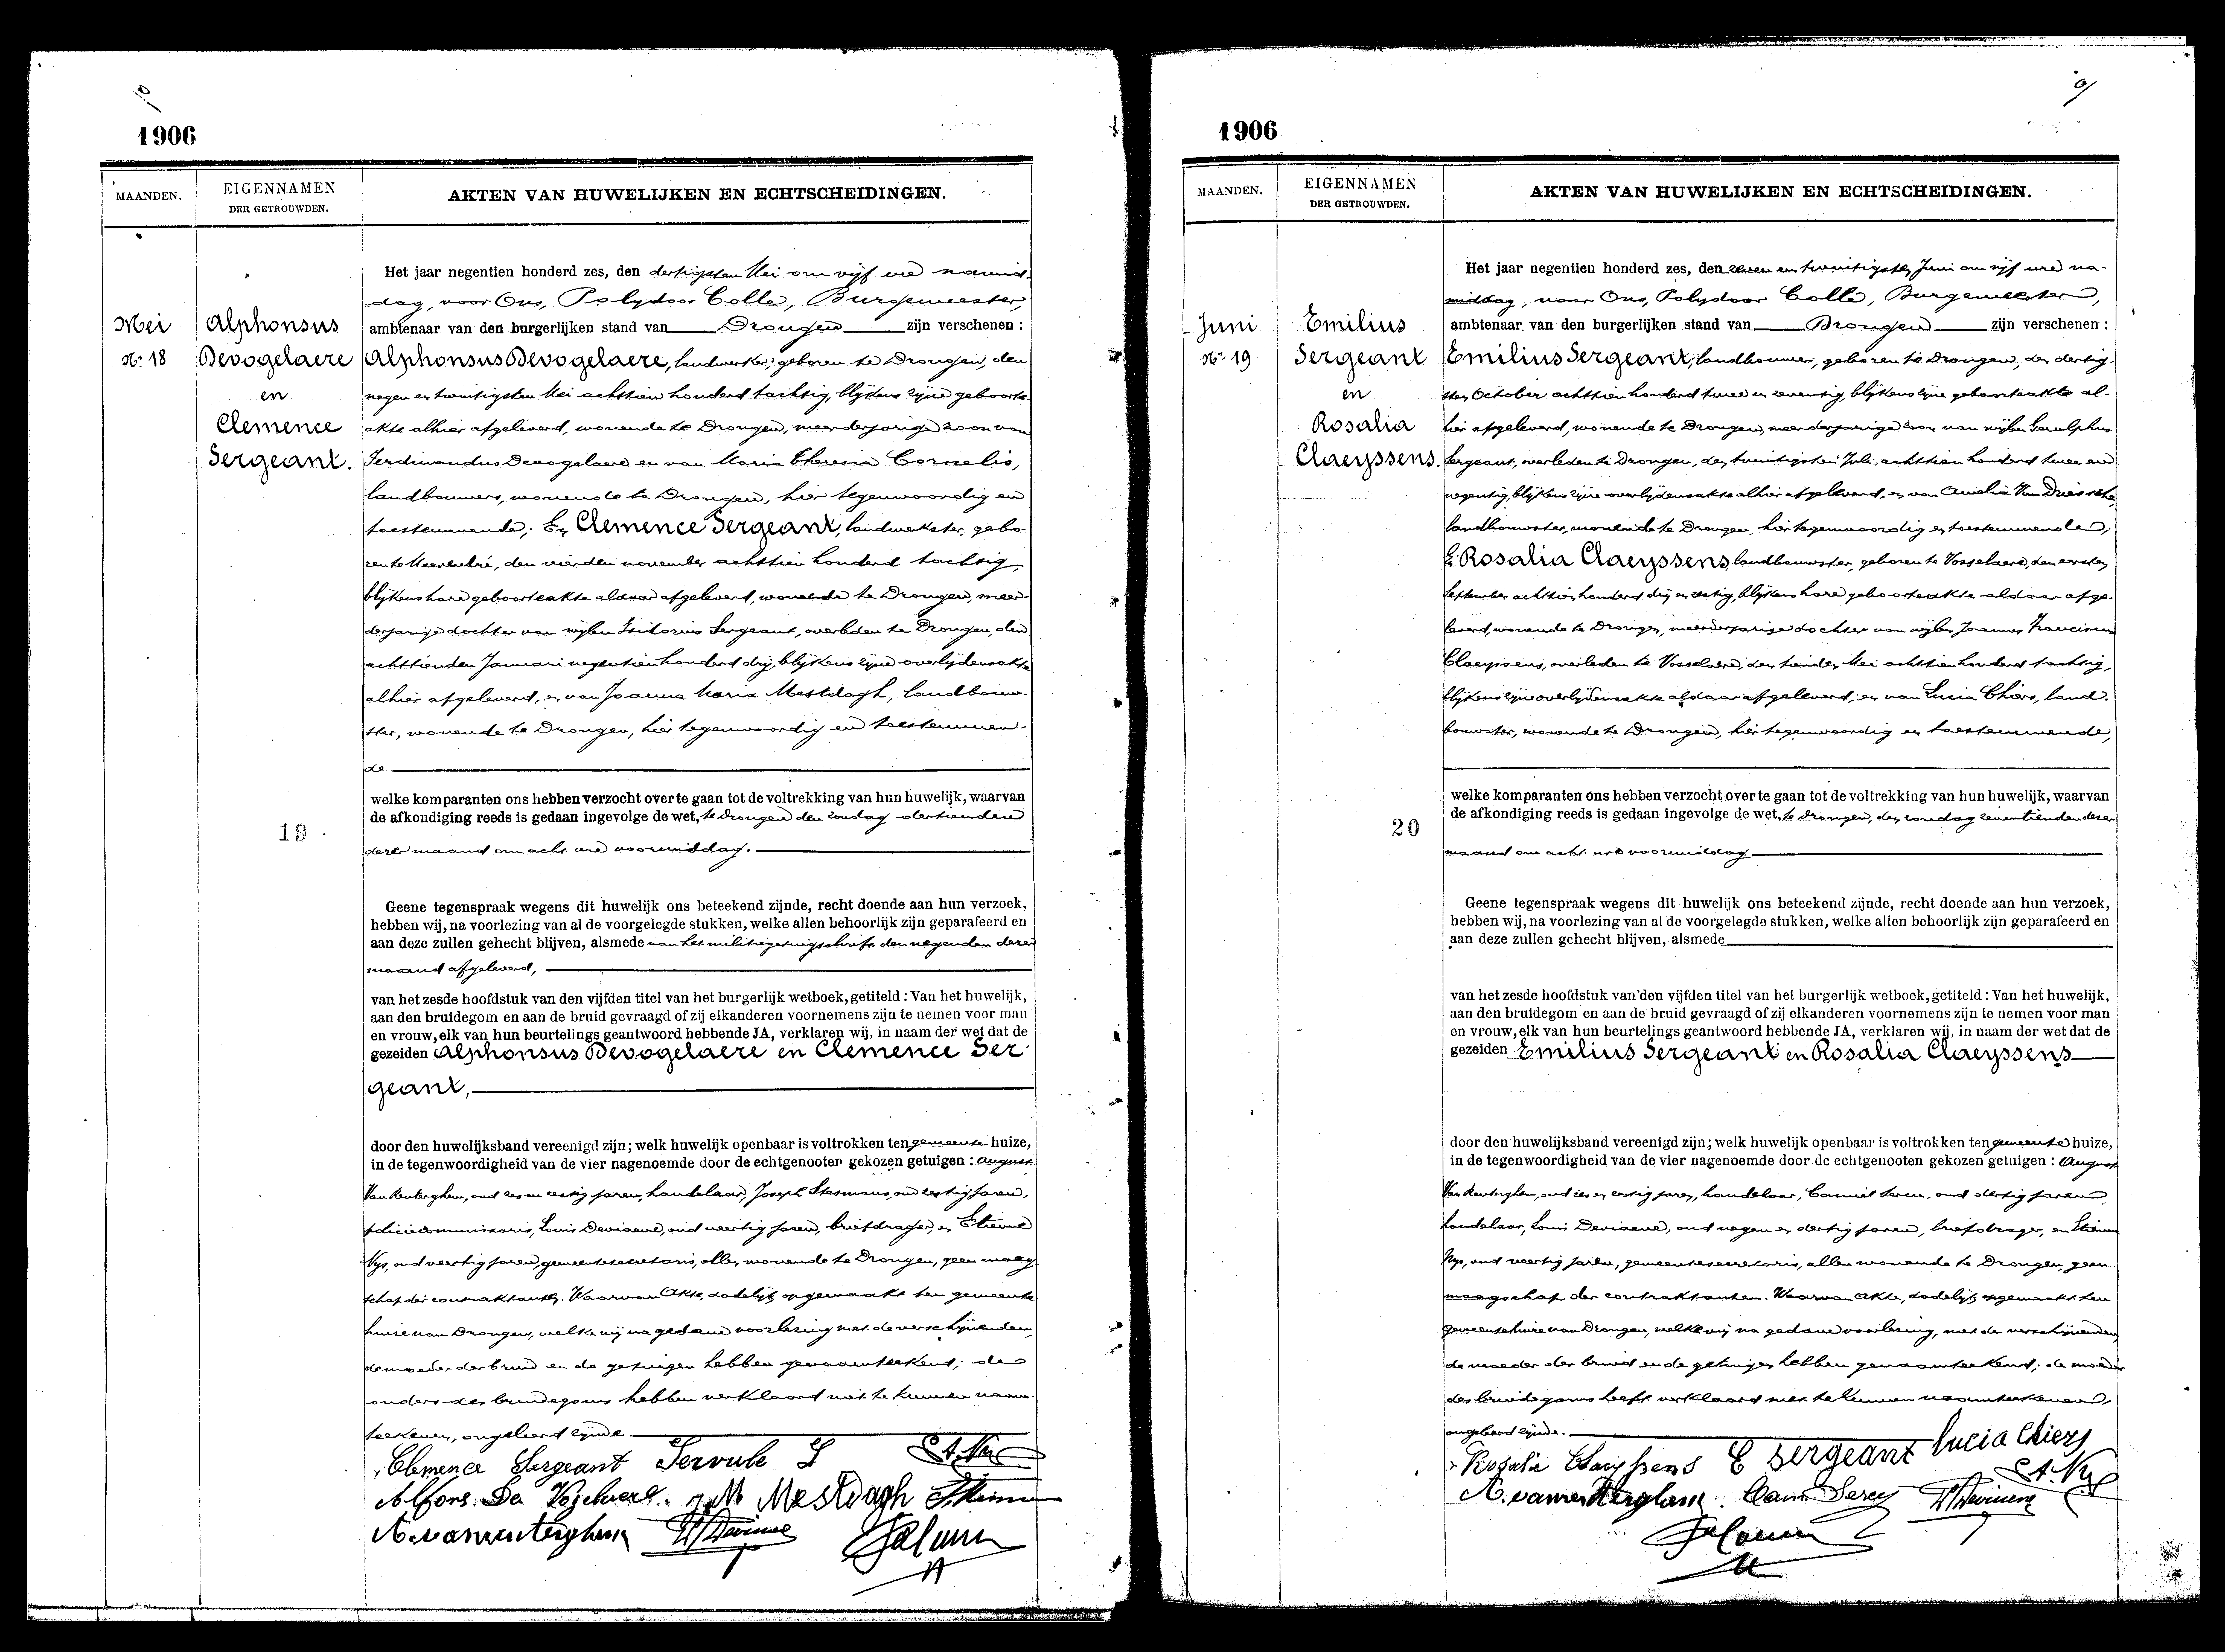 1906
MAANDEN.
EIGENNAMEN
DER GETROUWDEN.
AKTEN VAN HUWELIJKEN EN ECHTSCHEIDINGEN.
Mei
No 18
Alphonsus
Devogelaere
en
Clemence
Sergeant.
19
Het jaar negentien honderd zes, den dertigsten Mei om vijf ure namid-
dag, voor Ons, Polydoor Colle, Burgemeester,
ambtenaar van den burgerlijken stand van Drongen zijn verschenen :
Alphonsus Devogelaere, landwerker, geboren te Drongen, den
negen en twintigsten Mei achttien honderd tachtig, blijkens zijne geboorte-
akte alhier afgeleverd, wonende te Drongen, meerderjarige zoon van
Ferdinandus Devogelaere en van Maria Theresia Cornelis,
landbouwers, wonende te Drongen, hier tegenwoordig en
toestemmende; En Clemence Sergeant, landwerkster, gebo-
ren te Meerendré, den vierden november achttien honderd tachtig,
blijkens hare geboorteakte aldaar afgeleverd, wonende te Drongen, meer-
derjarige dochter van wijlen Isidorus Sergeant, overleden te Drongen, den
achttienden Januari negentien honderd drij, blijkens zijne overlijdensakte
alhier afgeleverd, en van Joanna Maria Mestdagh, landbouw-
ster, wonende te Drongen, hier tegenwoordig en toestemmen-
de
welke komparanten ons hebben verzocht over te gaan tot de voltrekking van hun huwelijk, waarvan
de afkondiging reeds is gedaan ingevolge de wet, te Drongen den zondag dertienden
dezer maand om acht ure voormiddag.
Geene tegenspraak wegens dit huwelijk ons beteekend zijnde, recht doende aan hun verzoek,
hebben wij, na voorlezing van al de voorgelegde stukken, welke allen behoorlijk zijn geparafeerd en
aan deze zullen gehecht blijven, alsmede van het militiegetuigschrift den negenden dezer
maand afgeleverd,
van het zesde hoofdstuk van den vijfden titel van het burgerlijk wetboek, getiteld : Van het huwelijk,
aan den bruidegom en aan de bruid gevraagd of zij elkanderen voornemens zijn te nemen voor man
en vrouw, elk van hun beurtelings geantwoord hebbende JA, verklaren wij, in naam der wet dat de
gezeiden Alphonsus Devogelaere en Clemence Ser-
geant,
door den huwelijksband vereenigd zijn; welk huwelijk openbaar is voltrokken ten gemeente huize,
in de tegenwoordigheid van de vier nagenoemde door de echtgenooten gekozen getuigen : August
Van Renterghem, oud zes en zestig jaren, handelaar, Joseph Stesmans, oud zestig jaren,
policiecommissaris, Louis Deviaene, oud veertig jaren, briefdrager, en Etienne
Nys, oud veertig jaren, gemeentesecretaris, allen wonende te Drongen, geen maag-
schap der contraktanten. Waarvan Akte, dadelijk opgemaakt ten gemeente
huize van Drongen, welke wij na gedane voorlezing met de verschijnenden,
de moeder der bruid en de getuigen hebben genaamteekend; de
ouders des bruidegoms hebben verklaard niet te kunnen naam-
teekenen, ongeleerd zijnde.
Clemence Sergeant Servule S St. Nys
Alfons De Vogelaere. J.M Mestdagh
A. vanrenterghem Ls Deviaene
1906
MAANDEN.
EIGENNAMEN
DER GETROUWDEN.
AKTEN VAN HUWELIJKEN EN ECHTSCHEIDINGEN.
Juni
No 19
Emilius
Sergeant
en
Rosalia
Claeyssens.
20
Het jaar negentien honderd zes, den zeven en twintigsten Juni om vijf ure na-
middag, voor Ons, Polydoor Colle, Burgemeester,
ambtenaar van den burgerlijken stand van Drongen zijn verschenen :
Emilius Sergeant, landbouwer, geboren te Drongen, den dertig-
sten October achttien honderd twee en zeventig, blijkens zijne geboorteakte al-
hier afgeleverd, wonende te Drongen, meerderjarige zoon van wijlen
Sergeant, overleden te Drongen, den twintigsten Juli achttien honderd twee en
negentig, blijkens zijne overlijdensakte alhier afgeleverd, en van Amelia Van Driessche,
landbouwster, wonende te Drongen, hier tegenwoordig en toestemmende;
En Rosalia Claeyssens, landbouwster, geboren te Vosselaere, den eersten
September achttien honderd drij en zestig, blijkens hare geboorteakte aldaar afge-
leverd, wonende te Drongen, meerderjarige dochter van wijlen Joannes Franciscus
Claeyssens, overleden te Vosselaere, den tienden Mei achttien honderd tachtig,
blijkens zijne overlijdensakte aldaar afgeleverd, en van Lucia Chiers, land-
bouwster, wonende te Drongen, hier tegenwoordig en toestemmende,
welke komparanten ons hebben verzocht over te gaan tot de voltrekking van hun huwelijk, waarvan
de afkondiging reeds is gedaan ingevolge de wet, te Drongen, den zondag zeventienden dezer
maand om acht ure voormiddag
Geene tegenspraak wegens dit huwelijk ons beteekend zijnde, recht doende aan hun verzoek,
hebben wij, na voorlezing van al de voorgelegde stukken, welke allen behoorlijk zijn geparafeerd en
aan deze zullen gehecht blijven, alsmede
van het zesde hoofdstuk van den vijfden titel van het burgerlijk wetboek, getiteld : Van het huwelijk,
aan den bruidegom en aan de bruid gevraagd of zij elkanderen voornemens zijn te nemen voor man
en vrouw, elk van hun beurtelings geantwoord hebbende JA, verklaren wij, in naam der wet dat de
gezeiden Emilius Sergeant en Rosalia Claeyssens
door den huwelijksband vereenigd zijn; welk huwelijk openbaar is voltrokken ten gemeente huize,
in de tegenwoordigheid van de vier nagenoemde door de echtgenooten gekozen getuigen : August
Van Renterghem, oud zes en zestig jaren, handelaar, Camiel Sercu, oud dertig jaren,
handelaar, Louis Deviaene, oud negen en dertig jaren, briefdrager, en Etienne
Nys, oud veertig jaren, gemeentesecretaris, allen wonende te Drongen, geen
maagschap der contraktanten. Waarvan Akte, dadelijk opgemaakt ten
gemeentehuize van Drongen, welke wij na gedane voorlezing, met de verschijnenden,
de moeder der bruid en de getuigen hebben genaamteekend; de moeder
des bruidegoms heeft verklaard niet te kunnen naamteekenen,
ongeleerd zijnde.
Rosalie Claeyssens E sergeant lucia Chiers
A. vanrenterghem Cam. Sercu Ls Deviaene St. Nys